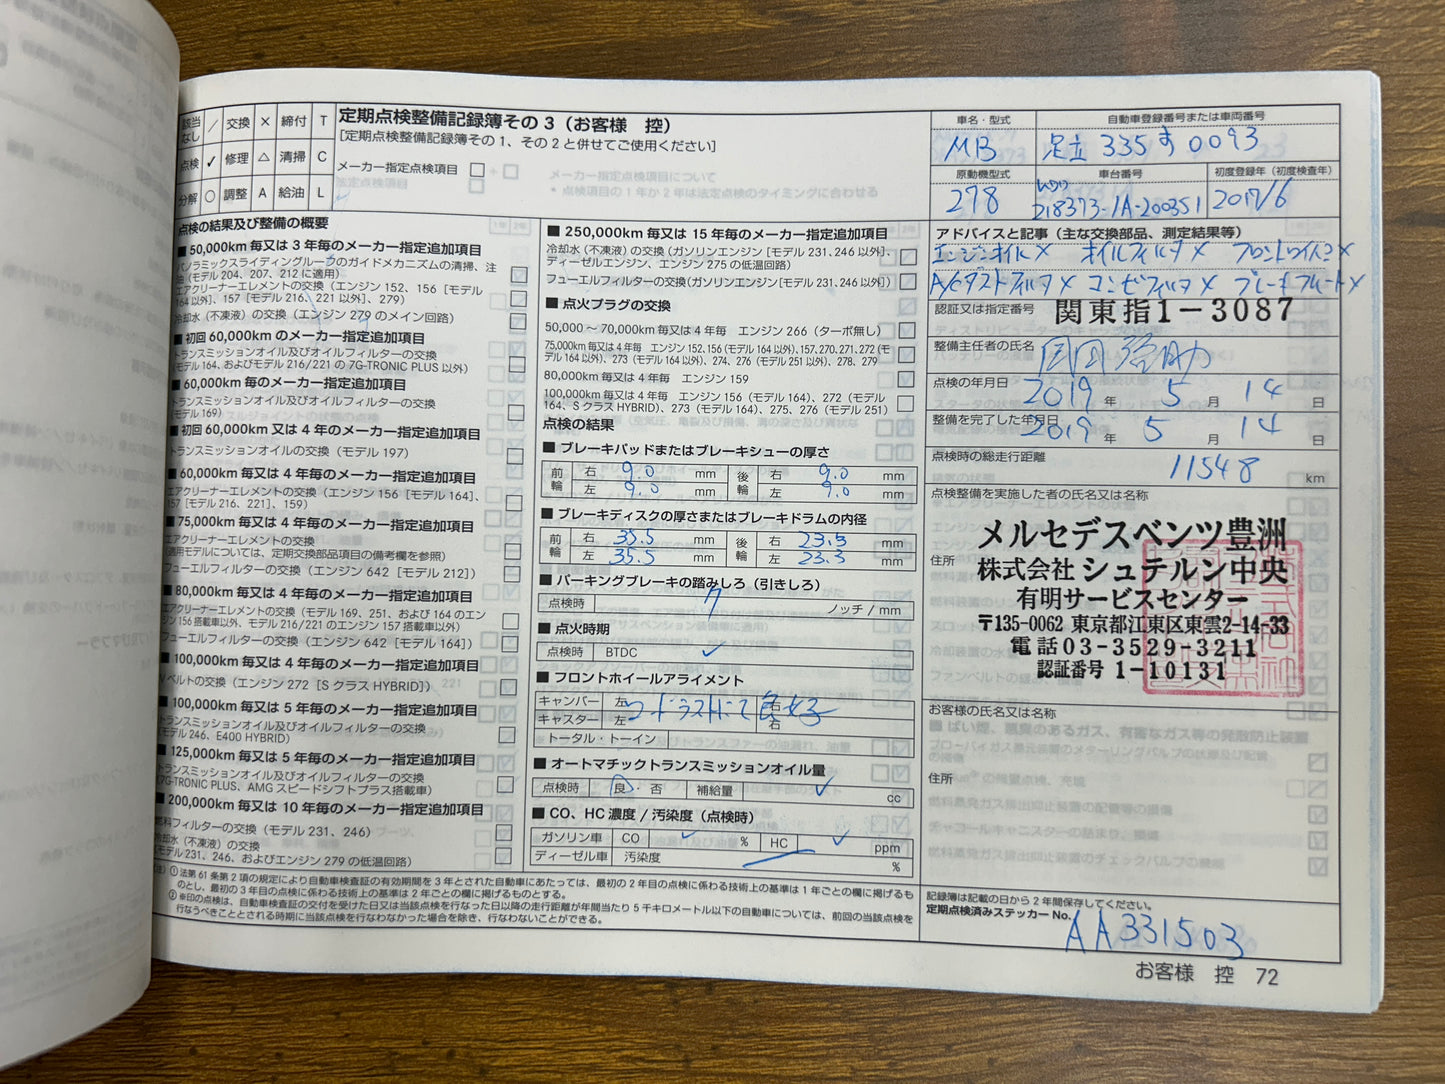 該当なし ／ 交換 × 締付 T
点検 ✓ 修理 △ 清掃 C
分解 ○ 調整 A 給油 L
定期点検整備記録簿その3（お客様　控）
［定期点検整備記録簿その1、その2と併せてご使用ください］
メーカー指定点検項目 □
点検の結果及び整備の概要
■ 50,000km 毎又は 3 年毎のメーカー指定追加項目
パノラミックスライディングルーフのガイドメカニズムの清掃、注
油（モデル 204、207、212 に適用）
エアクリーナーエレメントの交換（エンジン 152、156［モデル
164 以外］、157［モデル 216、221 以外］、279）
冷却水（不凍液）の交換（エンジン 279 のメイン回路）
■ 初回 60,000km のメーカー指定追加項目
トランスミッションオイル及びオイルフィルターの交換
（モデル 164 以外、モデル 216/221 の 7G-TRONIC PLUS 以外）
■ 60,000km 毎のメーカー指定追加項目
トランスミッションオイル及びオイルフィルターの交換
（モデル 169）
■ 初回 60,000km 又は 4 年毎のメーカー指定追加項目
トランスミッションオイルの交換（モデル 197）
■ 60,000km 毎又は 4 年毎のメーカー指定追加項目
エアクリーナーエレメントの交換（エンジン 156［モデル 164］、
157［モデル 216、221］、159）
■ 75,000km 毎又は 4 年毎のメーカー指定追加項目
エアクリーナーエレメントの交換
（適用モデルについては、定期交換部品項目の備考欄を参照）
フューエルフィルターの交換（エンジン 642［モデル 212］）
■ 80,000km 毎又は 4 年毎のメーカー指定追加項目
エアクリーナーエレメントの交換（モデル 169、251、および 164 のエン
ジン 156 搭載車以外、モデル 216/221 のエンジン 157 搭載車以外）
フューエルフィルターの交換（エンジン 642［モデル 164］）
■ 100,000km 毎又は 4 年毎のメーカー指定追加項目
V ベルトの交換（エンジン 272［S クラス HYBRID］）
■ 100,000km 毎又は 5 年毎のメーカー指定追加項目
トランスミッションオイル及びオイルフィルターの交換
（モデル 246、E400 HYBRID）
■ 125,000km 毎又は 5 年毎のメーカー指定追加項目
トランスミッションオイル及びオイルフィルターの交換
（7G-TRONIC PLUS、AMG スピードシフトプラス搭載車）
■ 200,000km 毎又は 10 年毎のメーカー指定追加項目
燃料フィルターの交換（モデル 231、246）
冷却水（不凍液）の交換
（モデル 231、246、およびエンジン 279 の低温回路）
■ 250,000km 毎又は 15 年毎のメーカー指定追加項目
冷却水（不凍液）の交換（ガソリンエンジン［モデル 231、246 以外］、
ディーゼルエンジン、エンジン 275 の低温回路）
フューエルフィルターの交換（ガソリンエンジン［モデル 231、246 以外］）
■ 点火プラグの交換
50,000 ～ 70,000km 毎又は 4 年毎　エンジン 266（ターボ無し）
75,000km 毎又は 4 年毎　エンジン 152、156（モデル 164 以外）、157、270、271、272（モ
デル 164 以外）、273（モデル 164 以外）、274、276（モデル 251 以外）、278、279
80,000km 毎又は 4 年毎　エンジン 159
100,000km 毎又は 4 年毎　エンジン 156（モデル 164）、272（モデル
164、S クラス HYBRID）、273（モデル 164）、275、276（モデル 251）
点検の結果
■ ブレーキパッドまたはブレーキシューの厚さ
前輪 右 9.0 mm 後輪 右 9.0 mm
左 9.0 mm 左 9.0 mm
■ ブレーキディスクの厚さまたはブレーキドラムの内径
前輪 右 35.5 mm 後輪 右 23.5 mm
左 35.5 mm 左 23.5 mm
■ パーキングブレーキの踏みしろ（引きしろ）
点検時 7 ノッチ / mm
■ 点火時期
点検時 BTDC ✓
■ フロントホイールアライメント
キャンバー 左 右
キャスター 左 右
ロードテストにて良好
トータル・トーイン
■ オートマチックトランスミッションオイル量
点検時 良・否 補給量 ✓ cc
■ CO、HC 濃度 / 汚染度（点検時）
ガソリン車 CO ✓ % HC ✓ ppm
ディーゼル車 汚染度 %
①法第 61 条第 2 項の規定により自動車検査証の有効期間を 3 年とされた自動車にあたっては、最初の 2 年目の点検に係わる技術上の基準は 1 年ごとの欄に掲げるも
のとし、最初の 3 年目の点検に係わる技術上の基準は 2 年ごとの欄に掲げるものとする。
②※印の点検は、自動車検査証の交付を受けた日又は当該点検を行なった日以降の走行距離が年間当たり 5 千キロメートル以下の自動車については、前回の当該点検を
行なうべきこととされる時期に当該点検を行なわなかった場合を除き、行なわないことができる。
車名・型式 自動車登録番号または車両番号
MB 足立 335 す 0093
原動機型式 車台番号 初度登録年（初度検査年）
278 WDD 218373-1A-200351 2017/6
アドバイスと記事（主な交換部品、測定結果等）
エンジンオイル× オイルフィルタ× フロントワイパゴム×
A/Cダストフィルタ× コンビフィルタ× ブレーキフルード×
認証又は指定番号 関東指1－3087
整備主任者の氏名
点検の年月日 2019 年 5 月 14 日
整備を完了した年月日 2019 年 5 月 14 日
点検時の総走行距離 11548 km
点検整備を実施した者の氏名又は名称
メルセデスベンツ豊洲
住所 株式会社 シュテルン中央
有明サービスセンター
〒135-0062 東京都江東区東雲2-14-33
電話 03-3529-3211
認証番号 1-10131
お客様の氏名又は名称
住所
記録簿は記載の日から 2 年間保存してください。
定期点検済みステッカー No. AA331503
お客様　控　72